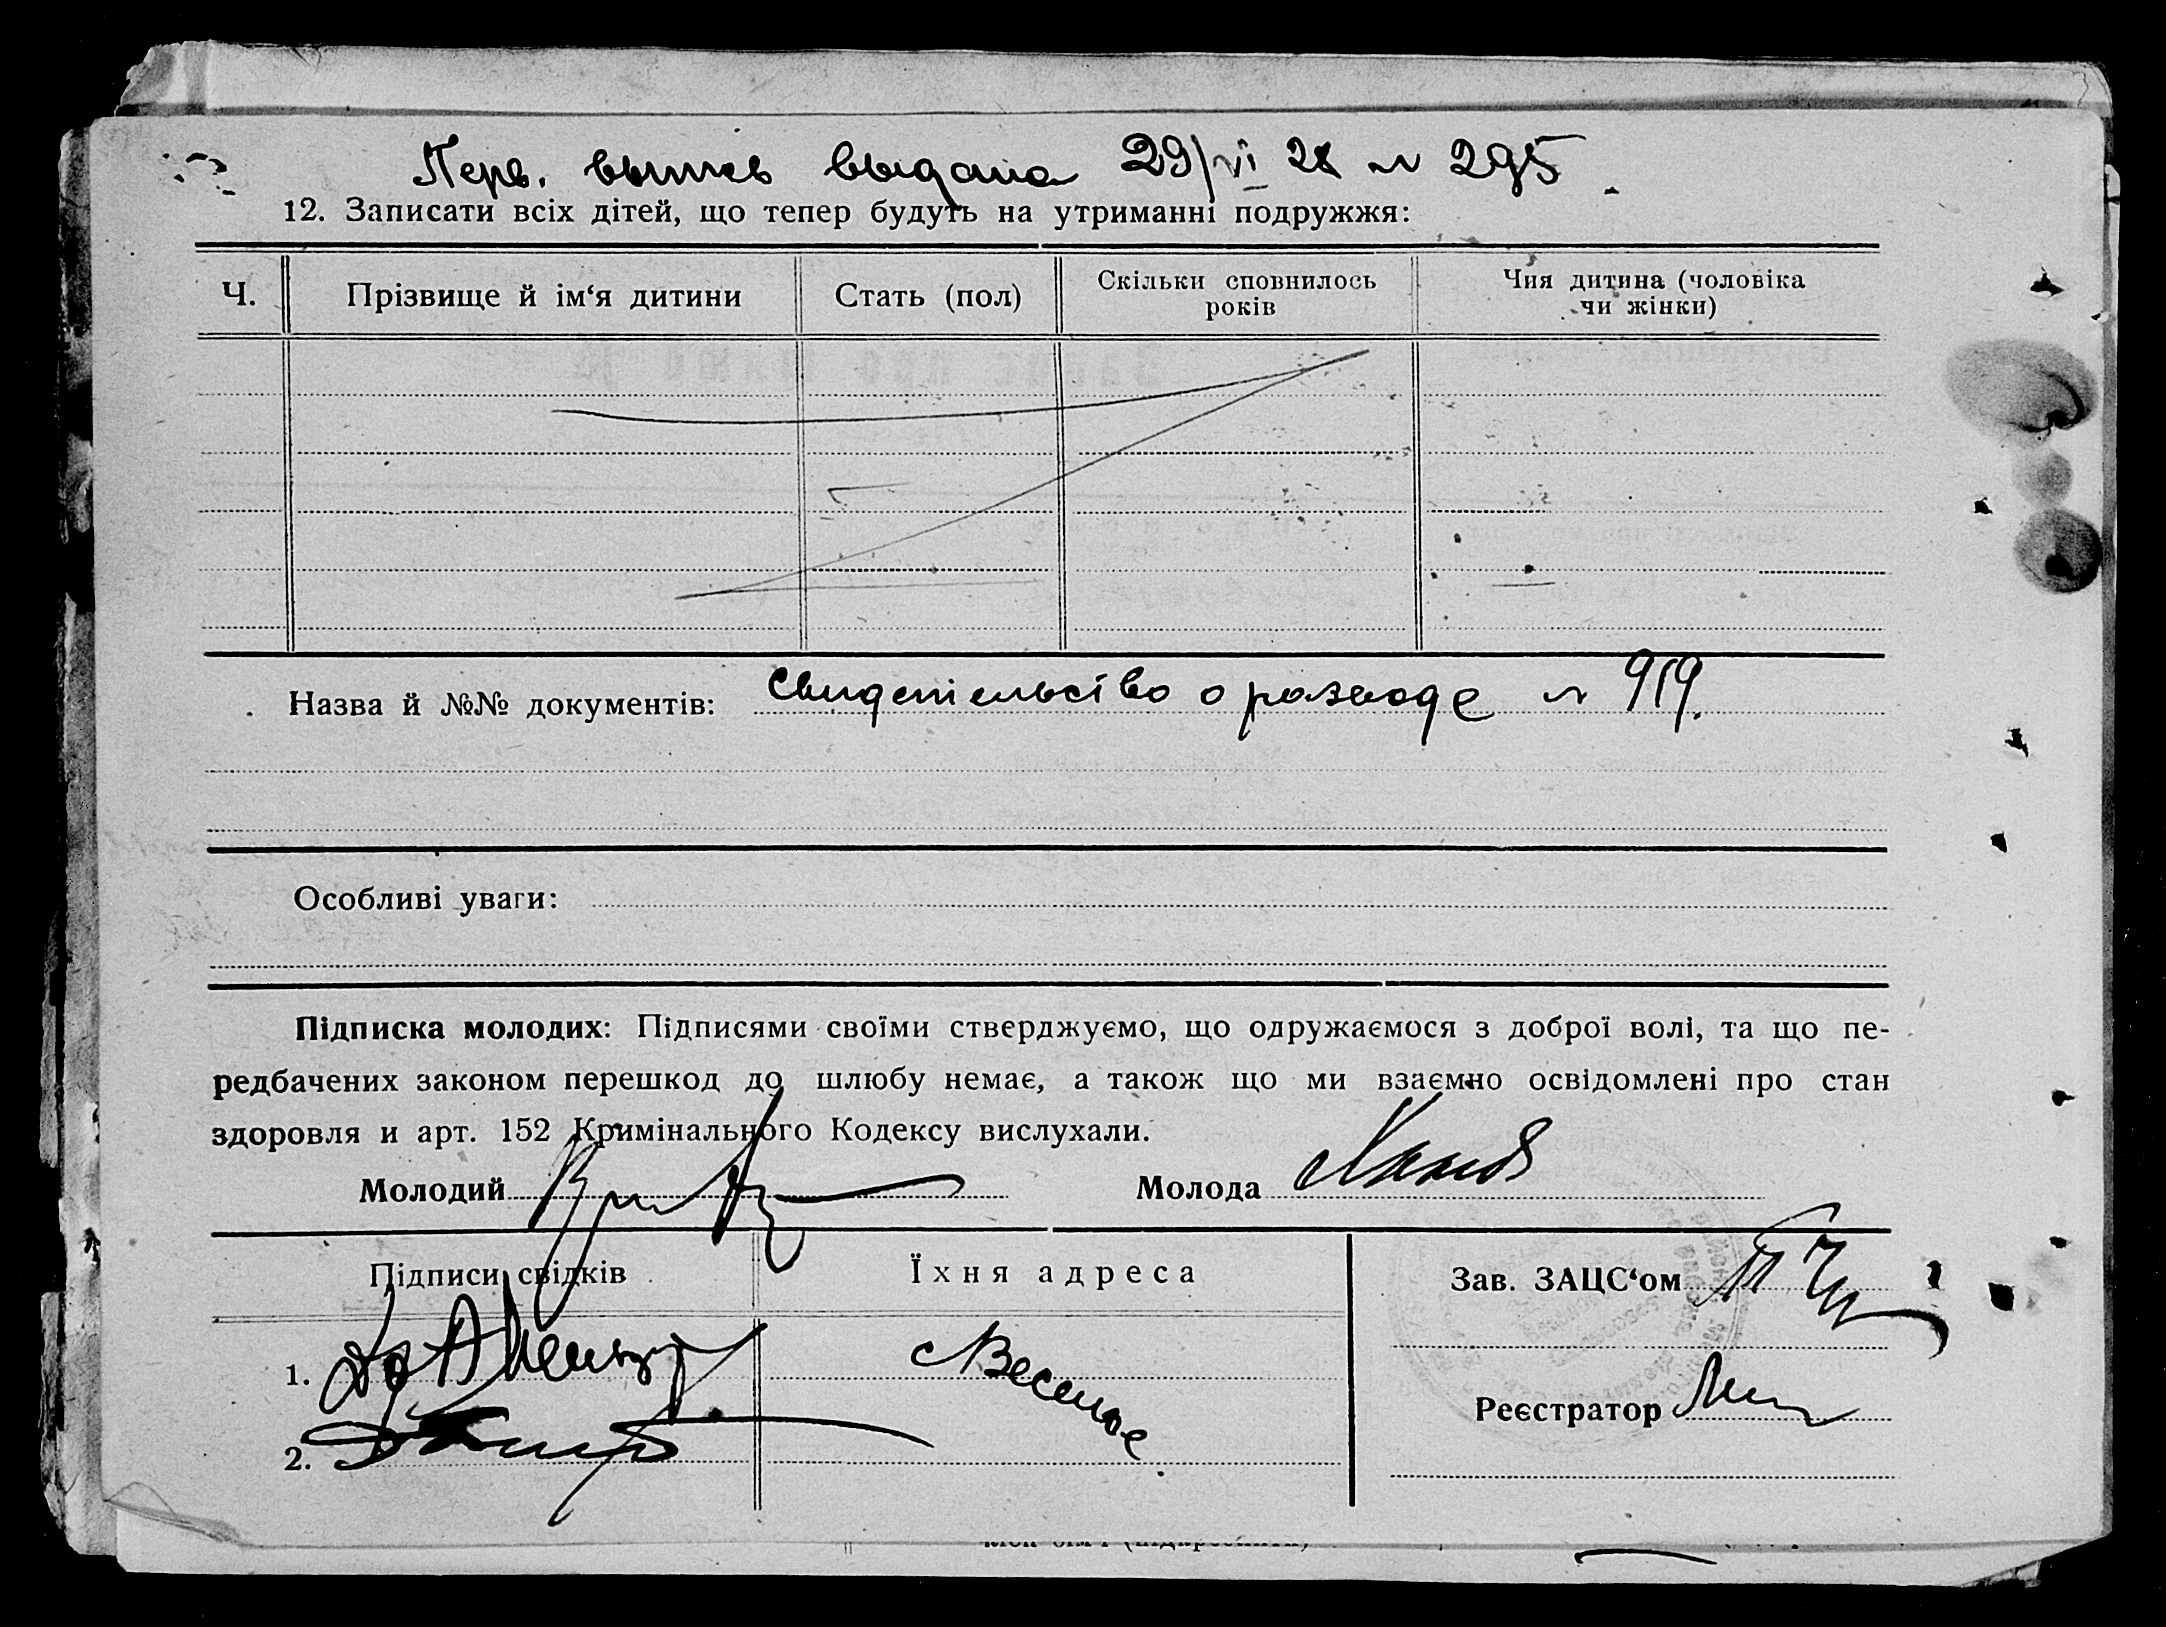 Перв. выпись выдана 29/VI 28 № 295
12. Записати всіх дітей, що тепер будуть на утриманні подружжя:
Ч. Прізвище й ім‘я дитини Стать (пол) Скільки сповнилось років Чия дитина (чоловіка чи жінки)
Назва й №№ документів: Свидетельство о разводе № 919.
Особливі уваги:
Підписка молодих: Підписями своїми стверджуємо, що одружаємося з доброї волі, та що пе-
редбачених законом перешкод до шлюбу немає, а також що ми взаємно освідомлені про стан
здоровля и арт. 152 Крімінального Кодексу вислухали.
Молодий Молода
Підписи свідків Їхня адреса Зав. ЗАЦС‘ом
1. Веселые
Реєстратор
2.